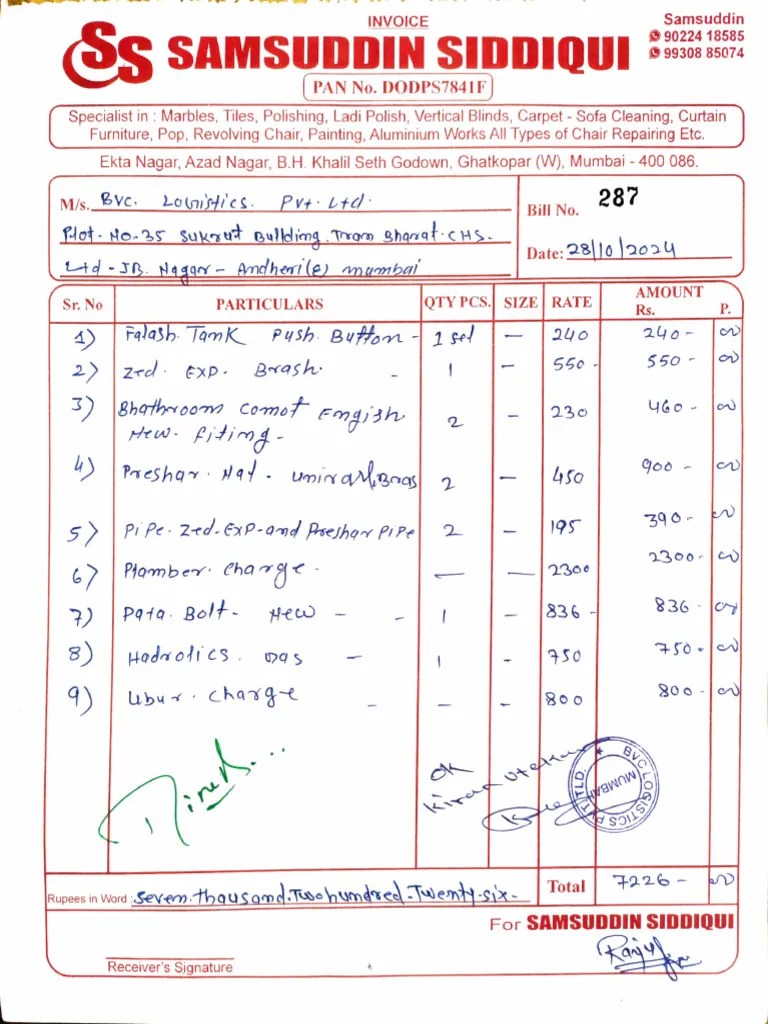 INVOICE
SS SAMSUDDIN SIDDIQUI
Samsuddin
90224 18585
99308 85074
PAN No. DODPS7841F
Specialist in : Marbles, Tiles, Polishing, Ladi Polish, Vertical Blinds, Carpet - Sofa Cleaning, Curtain
Furniture, Pop, Revolving Chair, Painting, Aluminium Works All Types of Chair Repairing Etc.
Ekta Nagar, Azad Nagar, B.H. Khalil Seth Godown, Ghatkopar (W), Mumbai - 400 086.
M/s. BVC. LOGISTICS. PVT. Ltd.
Plot-No-35 Sukrut Building. Tram Bharat-CHS-
Ltd-JB. Nagar-Andheri(E) Mumbai
Bill No. 287
Date: 28/10/2024
Sr. No PARTICULARS QTY PCS. SIZE RATE AMOUNT Rs. P.
1) Falash Tank Push Button - 1 set - 240 240- 00
2) Zed. EXP. Brash. - 1 - 550- 550- 00
3) Bhathroom Comot Emgish 2 - 230 460- 00
New. fiting-
4) Preshar. Nat. 2 - 450 900- 00
5) PiPe. Zed-EXP-and Preshar PiPe 2 - 195 390- 00
6) Plamber. Charge- - - 2300 2300- 00
7) Pata. Bolt- New - - 1 - 836- 836- 00
8) Hadrolics. Gas - 1 - 750 750- 00
9) Ubur. Charge - - - 800 800- 00
OK
Kiran Utekar
BVC LOGISTICS PVT. LTD.
MUMBAI
Rupees in Word : Seven.thausand.Twohundred.Twenty-six- Total 7226- 00
For SAMSUDDIN SIDDIQUI
Receiver's Signature